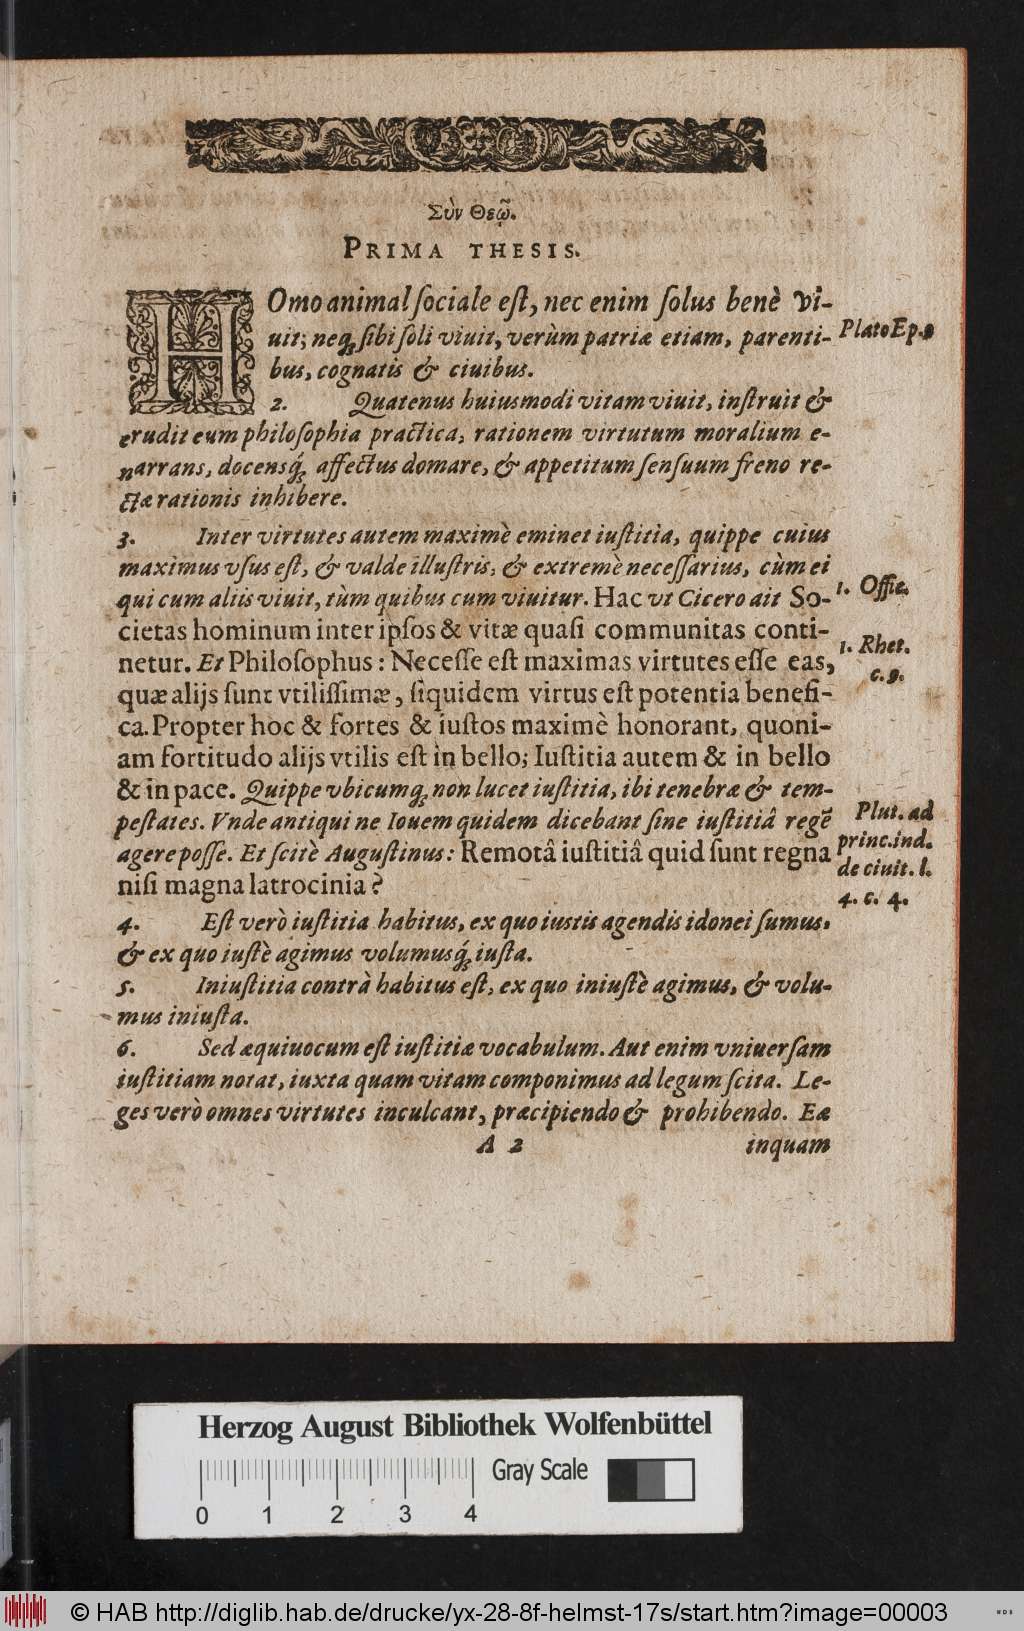 Σὺν Θεῷ.
PRIMA THESIS.
HOmo animal ſociale eſt, nec enim ſolus benè vi-
uit; neq; ſibi ſoli viuit, verùm patriæ etiam, parenti-
Plato Ep. 9
bus, cognatis & ciuibus.
2. Quatenus huiusmodi vitam viuit, inſtruit &
erudit eum philoſophia practica, rationem virtutum moralium e-
narrans, docensq́; affectus domare, & appetitum ſenſuum freno re-
ctæ rationis inhibere.
3. Inter virtutes autem maximè eminet iuſtitia, quippe cuius
maximus vſus eſt, & valde illuſtris, & extremè neceſſarius, cùm ei
qui cum aliis viuit, tùm quibus cum viuitur. Hac vt Cicero ait So-
1. Offic.
cietas hominum inter ipſos & vitæ quaſi communitas conti-
netur. Et Philoſophus: Neceſſe eſt maximas virtutes eſſe eas,
1. Rhet.
c. 9.
quæ alijs ſunt vtiliſſimæ, ſiquidem virtus eſt potentia benefi-
ca. Propter hoc & fortes & iuſtos maximè honorant, quoni-
am fortitudo alijs vtilis eſt in bello; Iuſtitia autem & in bello
& in pace. Quippe vbicumq; non lucet iuſtitia, ibi tenebræ & tem-
peſtates. Vnde antiqui ne Iouem quidem dicebant ſine iuſtitiâ regē
Plut. ad
princ. ind.
agere poſſe. Et ſcitè Auguſtinus: Remotâ iuſtitiâ quid ſunt regna
de ciuit. l.
4. c. 4.
niſi magna latrocinia?
4. Eſt verò iuſtitia habitus, ex quo iustis agendis idonei ſumus,
& ex quo iuſtè agimus volumusq́; iuſta.
5. Iniuſtitia contrà habitus eſt, ex quo iniuſtè agimus, & volu-
mus iniuſta.
6. Sed æquiuocum eſt iuſtitiæ vocabulum. Aut enim vniuerſam
iuſtitiam notat, iuxta quam vitam componimus ad legum ſcita. Le-
ges verò omnes virtutes inculcant, præcipiendo & prohibendo. Eæ
A 2 inquam
Herzog August Bibliothek Wolfenbüttel
Gray Scale
0 1 2 3 4
© HAB http://diglib.hab.de/drucke/yx-28-8f-helmst-17s/start.htm?image=00003